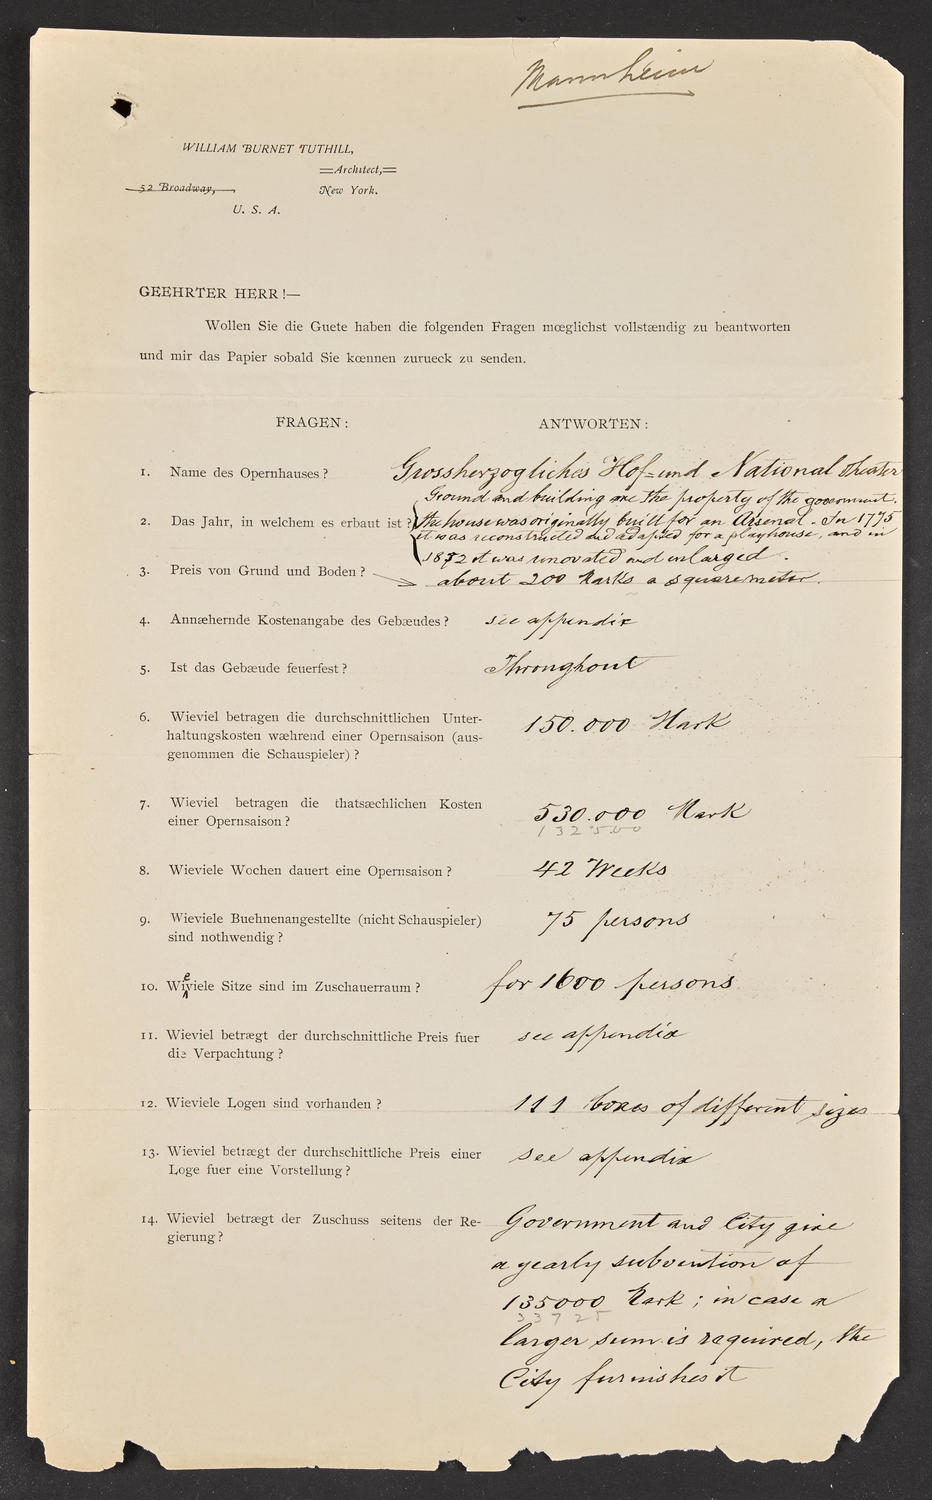 Mannheim
WILLIAM BURNET TUTHILL,
Architect,
52 Broadway, New York.
U. S. A.
GEEHRTER HERR!—
Wollen Sie die Guete haben die folgenden Fragen mœglichst vollstændig zu beantworten
und mir das Papier sobald Sie kœnnen zurueck zu senden.
FRAGEN: ANTWORTEN:
1. Name des Opernhauses? Grossherzogliches Hof- und National Theater
Ground and building are the property of the government.
2. Das Jahr, in welchem es erbaut ist? the house was originally built for an Arsenal. - In 1775
it was reconstructed and adapted for a playhouse, and in
1852 it was renovated and enlarged.
3. Preis von Grund und Boden? about 200 Marks a square meter.
4. Annæhernde Kostenangabe des Gebæudes? see appendix
5. Ist das Gebæude feuerfest? Throughout
6. Wieviel betragen die durchschnittlichen Unter-
haltungskosten wæhrend einer Opernsaison (aus-
genommen die Schauspieler)? 150.000 Mark
7. Wieviel betragen die thatsæchlichen Kosten
einer Opernsaison? 530.000 Mark
132500
8. Wieviele Wochen dauert eine Opernsaison? 42 Weeks
9. Wieviele Buehnenangestellte (nicht Schauspieler)
sind nothwendig? 75 persons
10. Wieviele Sitze sind im Zuschauerraum? for 1600 persons
11. Wieviel betrægt der durchschnittliche Preis fuer
die Verpachtung? see appendix
12. Wieviele Logen sind vorhanden? 111 boxes of different sizes
13. Wieviel betrægt der durchschittliche Preis einer
Loge fuer eine Vorstellung? see appendix
14. Wieviel betrægt der Zuschuss seitens der Re-
gierung? Government and City give
a yearly subvention of
135000 Mark; in case a
33725
larger sum is required, the
City furnishes it